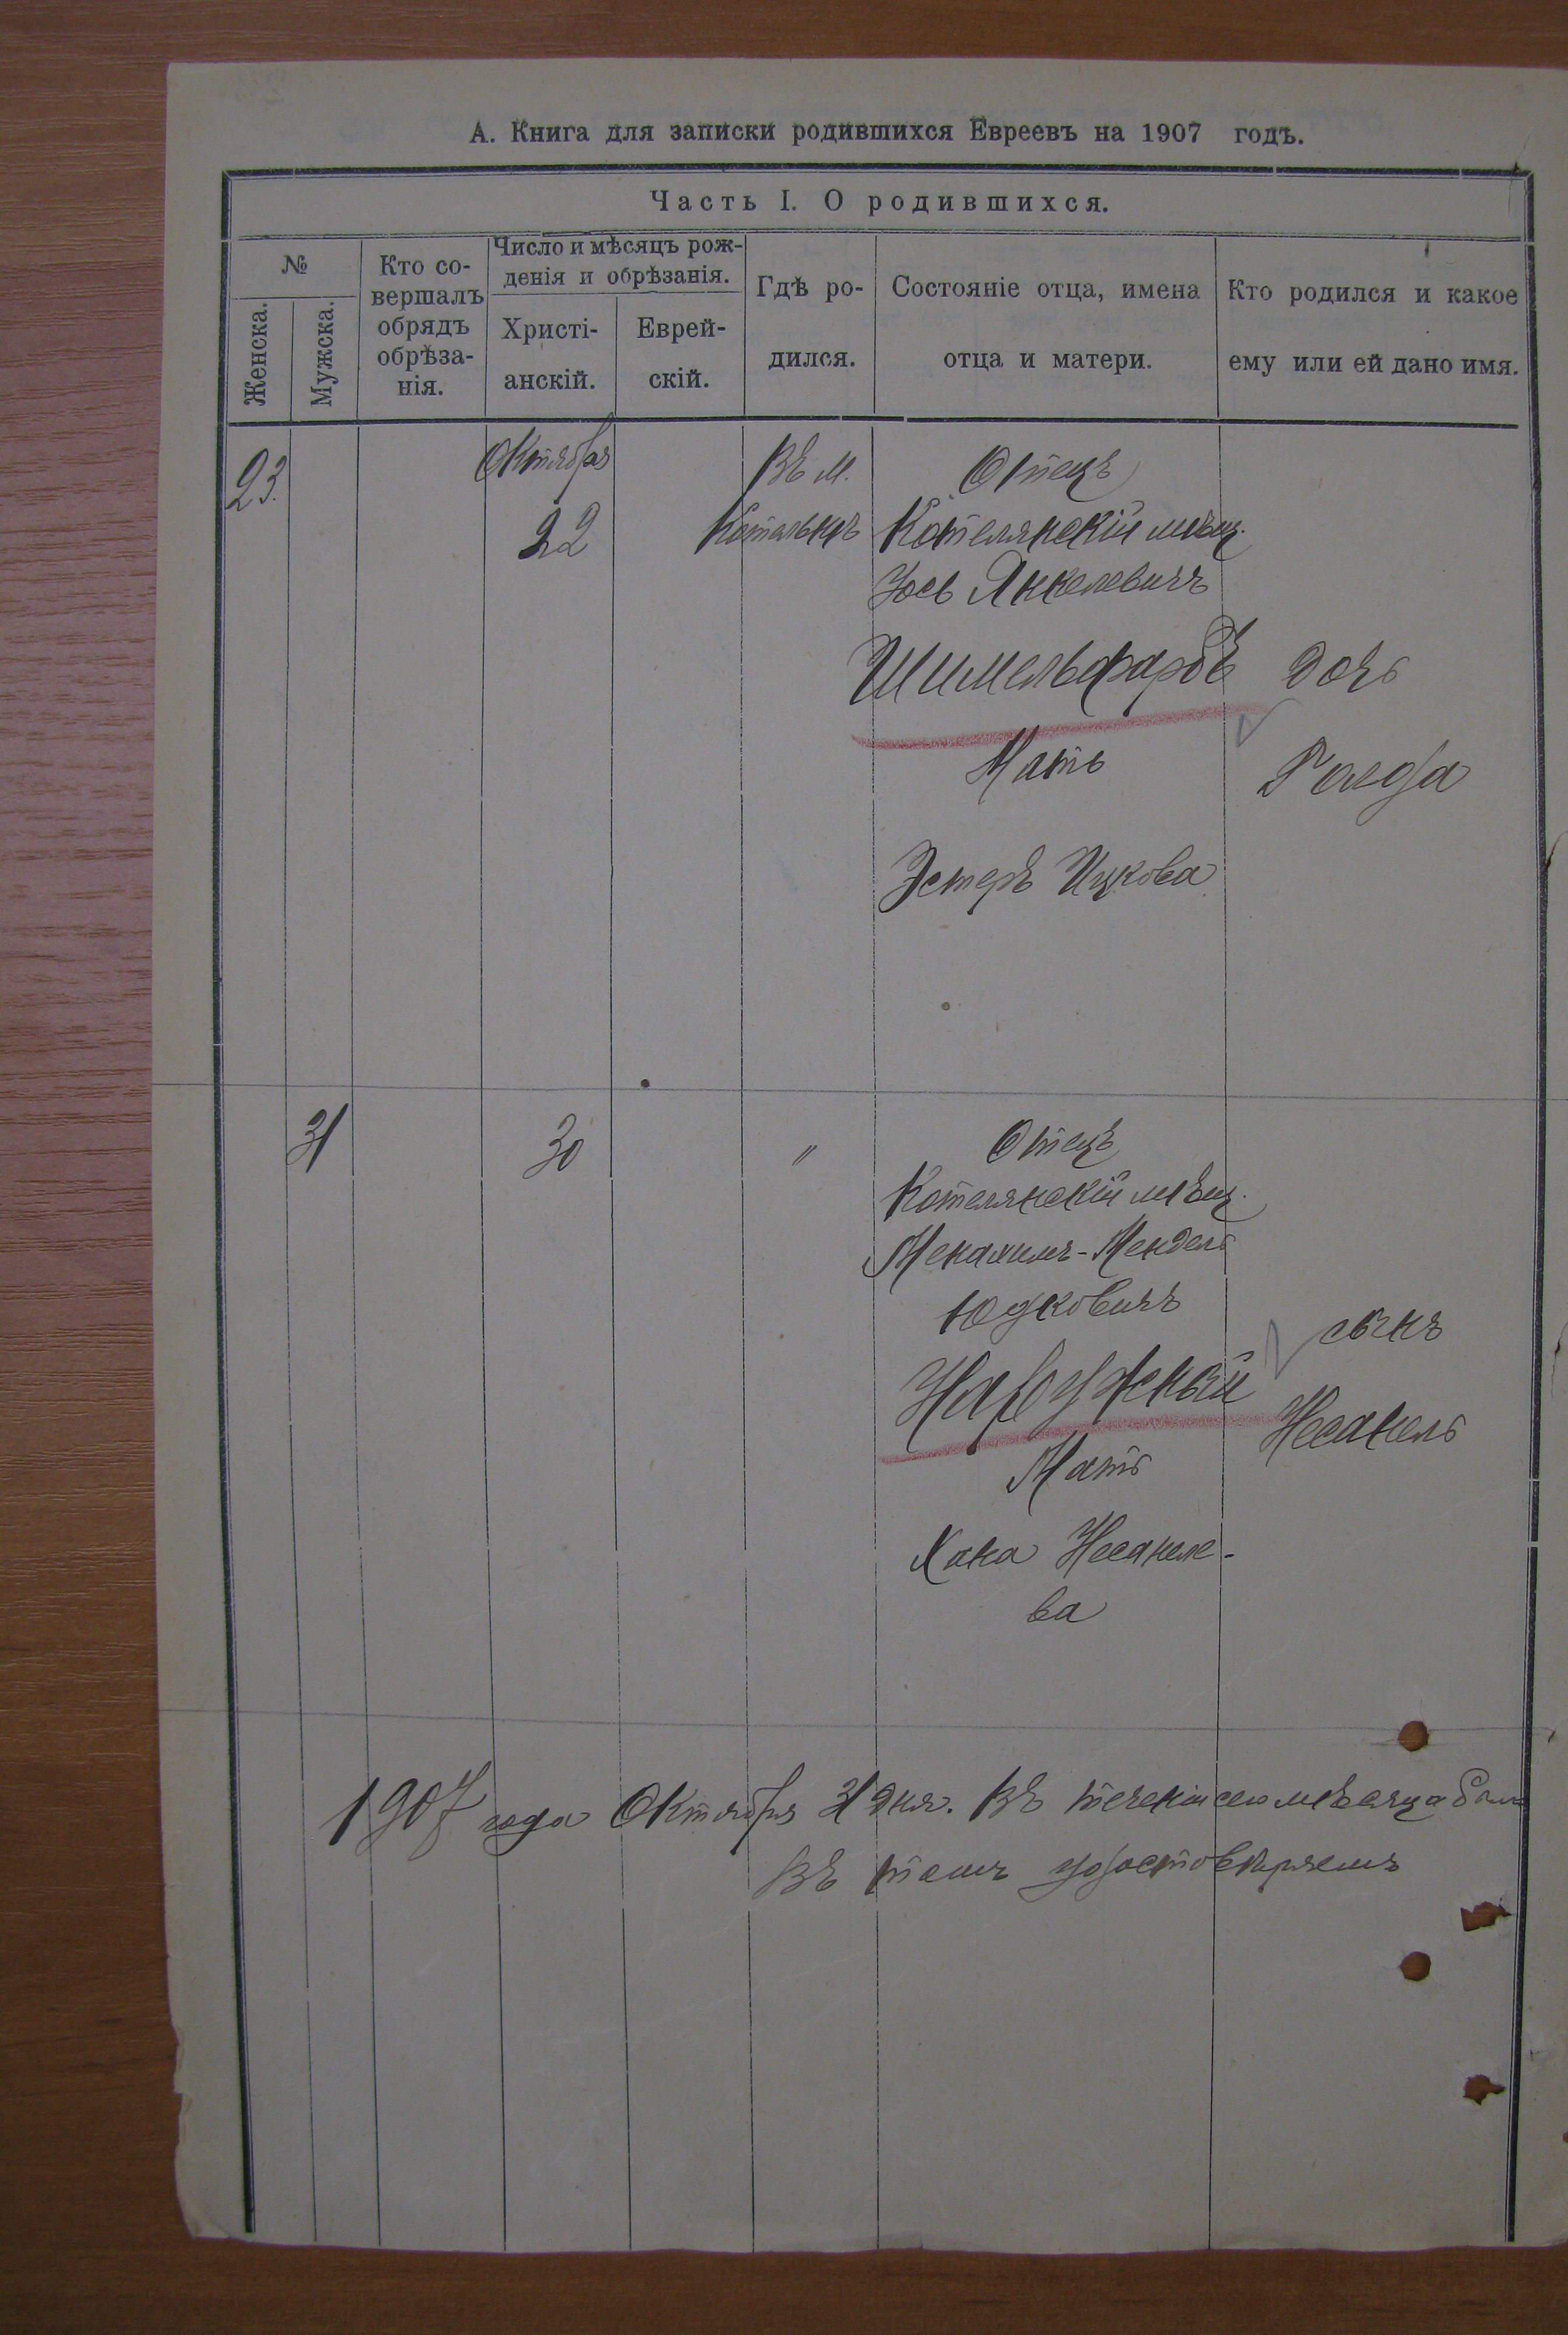 А. Книга для записки родившихся Евреевъ на 1907 годъ.
Часть I. О родившихся.
№
Женска.
Мужска.
Кто со-
вершалъ
обрядъ
обрѣза-
нія.
Число и мѣсяцъ рож-
денія и обрѣзанія.
Христі-
анскій.
Еврей-
скій.
Гдѣ ро-
дился.
Состояніе отца, имена
отца и матери.
Кто родился и какое
ему или ей дано имя.
23.
Октября
22
Въ м.
Котельнѣ
Отецъ
Котелянскій мѣщ.
Іось Янкелевичъ
Шимельфарбъ
Мать
Эстеръ Ицкова
дочь
Голда
31
30
"
Отецъ
Котелянскій мѣщ.
Менахимъ-Мендель
Юдковичъ
Наружный
Мать
Хана Несанеле-
ва
сынъ
Несанель
1907 года Октября 31 дня. Въ теченіи сего мѣсяца
Въ томъ удостовѣряемъ